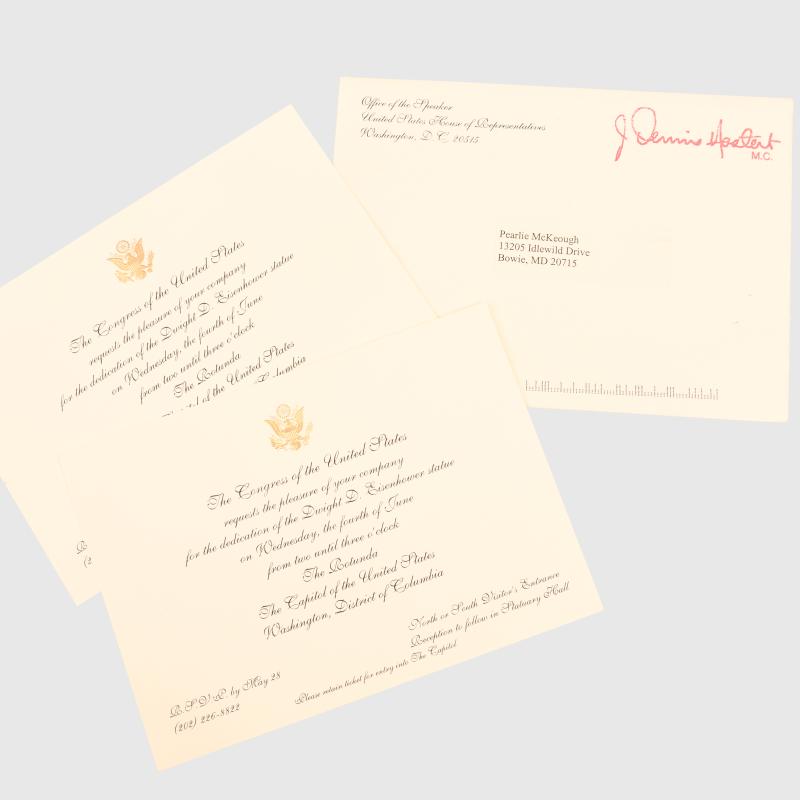 Office of the Speaker
United States House of Representatives
Washington, D.C. 20515
J Dennis Hastert
M.C.
Pearlie McKeough
13205 Idlewild Drive
Bowie, MD 20715
The Congress of the United States
requests the pleasure of your company
for the dedication of the Dwight D. Eisenhower statue
on Wednesday, the fourth of June
from two until three o'clock
The Rotunda
of the United States
Columbia
R
(2
The Congress of the United States
requests the pleasure of your company
for the dedication of the Dwight D. Eisenhower statue
on Wednesday, the fourth of June
from two until three o'clock
The Rotunda
The Capitol of the United States
Washington, District of Columbia
North or South Visitor's Entrance
Reception to follow in Statuary Hall
R.S.V.P. by May 28
(202) 226-8822
Please retain ticket for entry into The Capitol